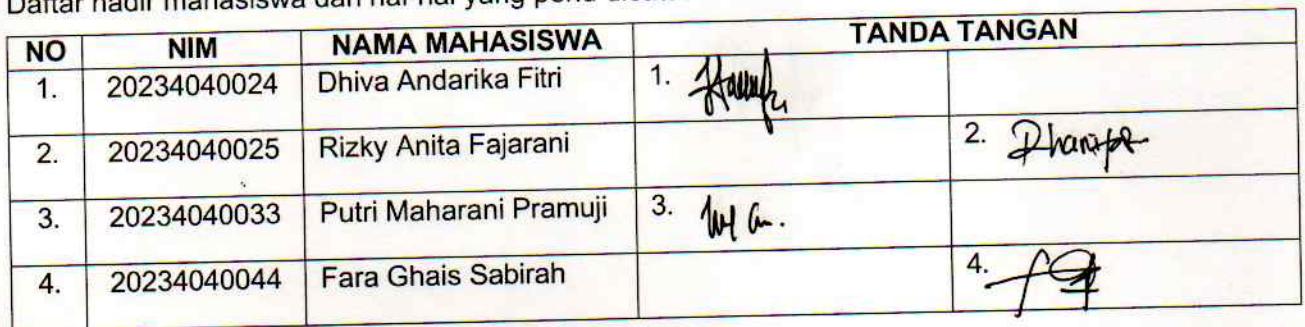 Daftar hadir mahasiswa dan hal-hal yang perlu
NO NIM NAMA MAHASISWA TANDA TANGAN
1. 20234040024 Dhiva Andarika Fitri 1.
2. 20234040025 Rizky Anita Fajarani 2.
3. 20234040033 Putri Maharani Pramuji 3.
4. 20234040044 Fara Ghais Sabirah 4.